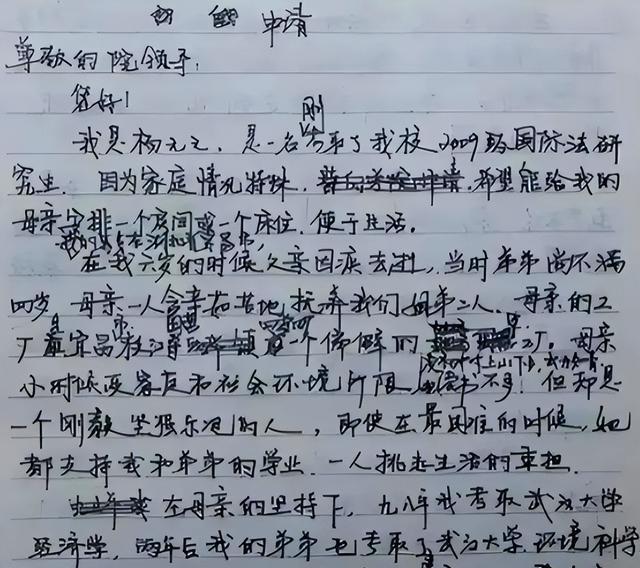 申请
尊敬的院领导:
您好!
我是杨元元,是一名刚考取了我校2009级国际法研
究生.因为家庭情况特殊,希望能给我的
母亲安排一个房间或一个床位.便于生活。
在我六岁的时候父亲因病去逝,当时弟弟尚不满
四岁 母亲一人含辛茹苦地抚养我们姐弟二人.母亲的工
厂是宜昌市枝江 一个偏僻的 工厂.母亲
小时候受家庭和社会环境所限, 但却是
一个刚毅坚强乐观的人,即使在最困难的时候,她
都支持我和弟弟的学业.一人挑起生活的重担.
在母亲的坚持下,九八年我考取武汉大学
经济学,两年后我的弟弟也考取了武汉大学环境科学